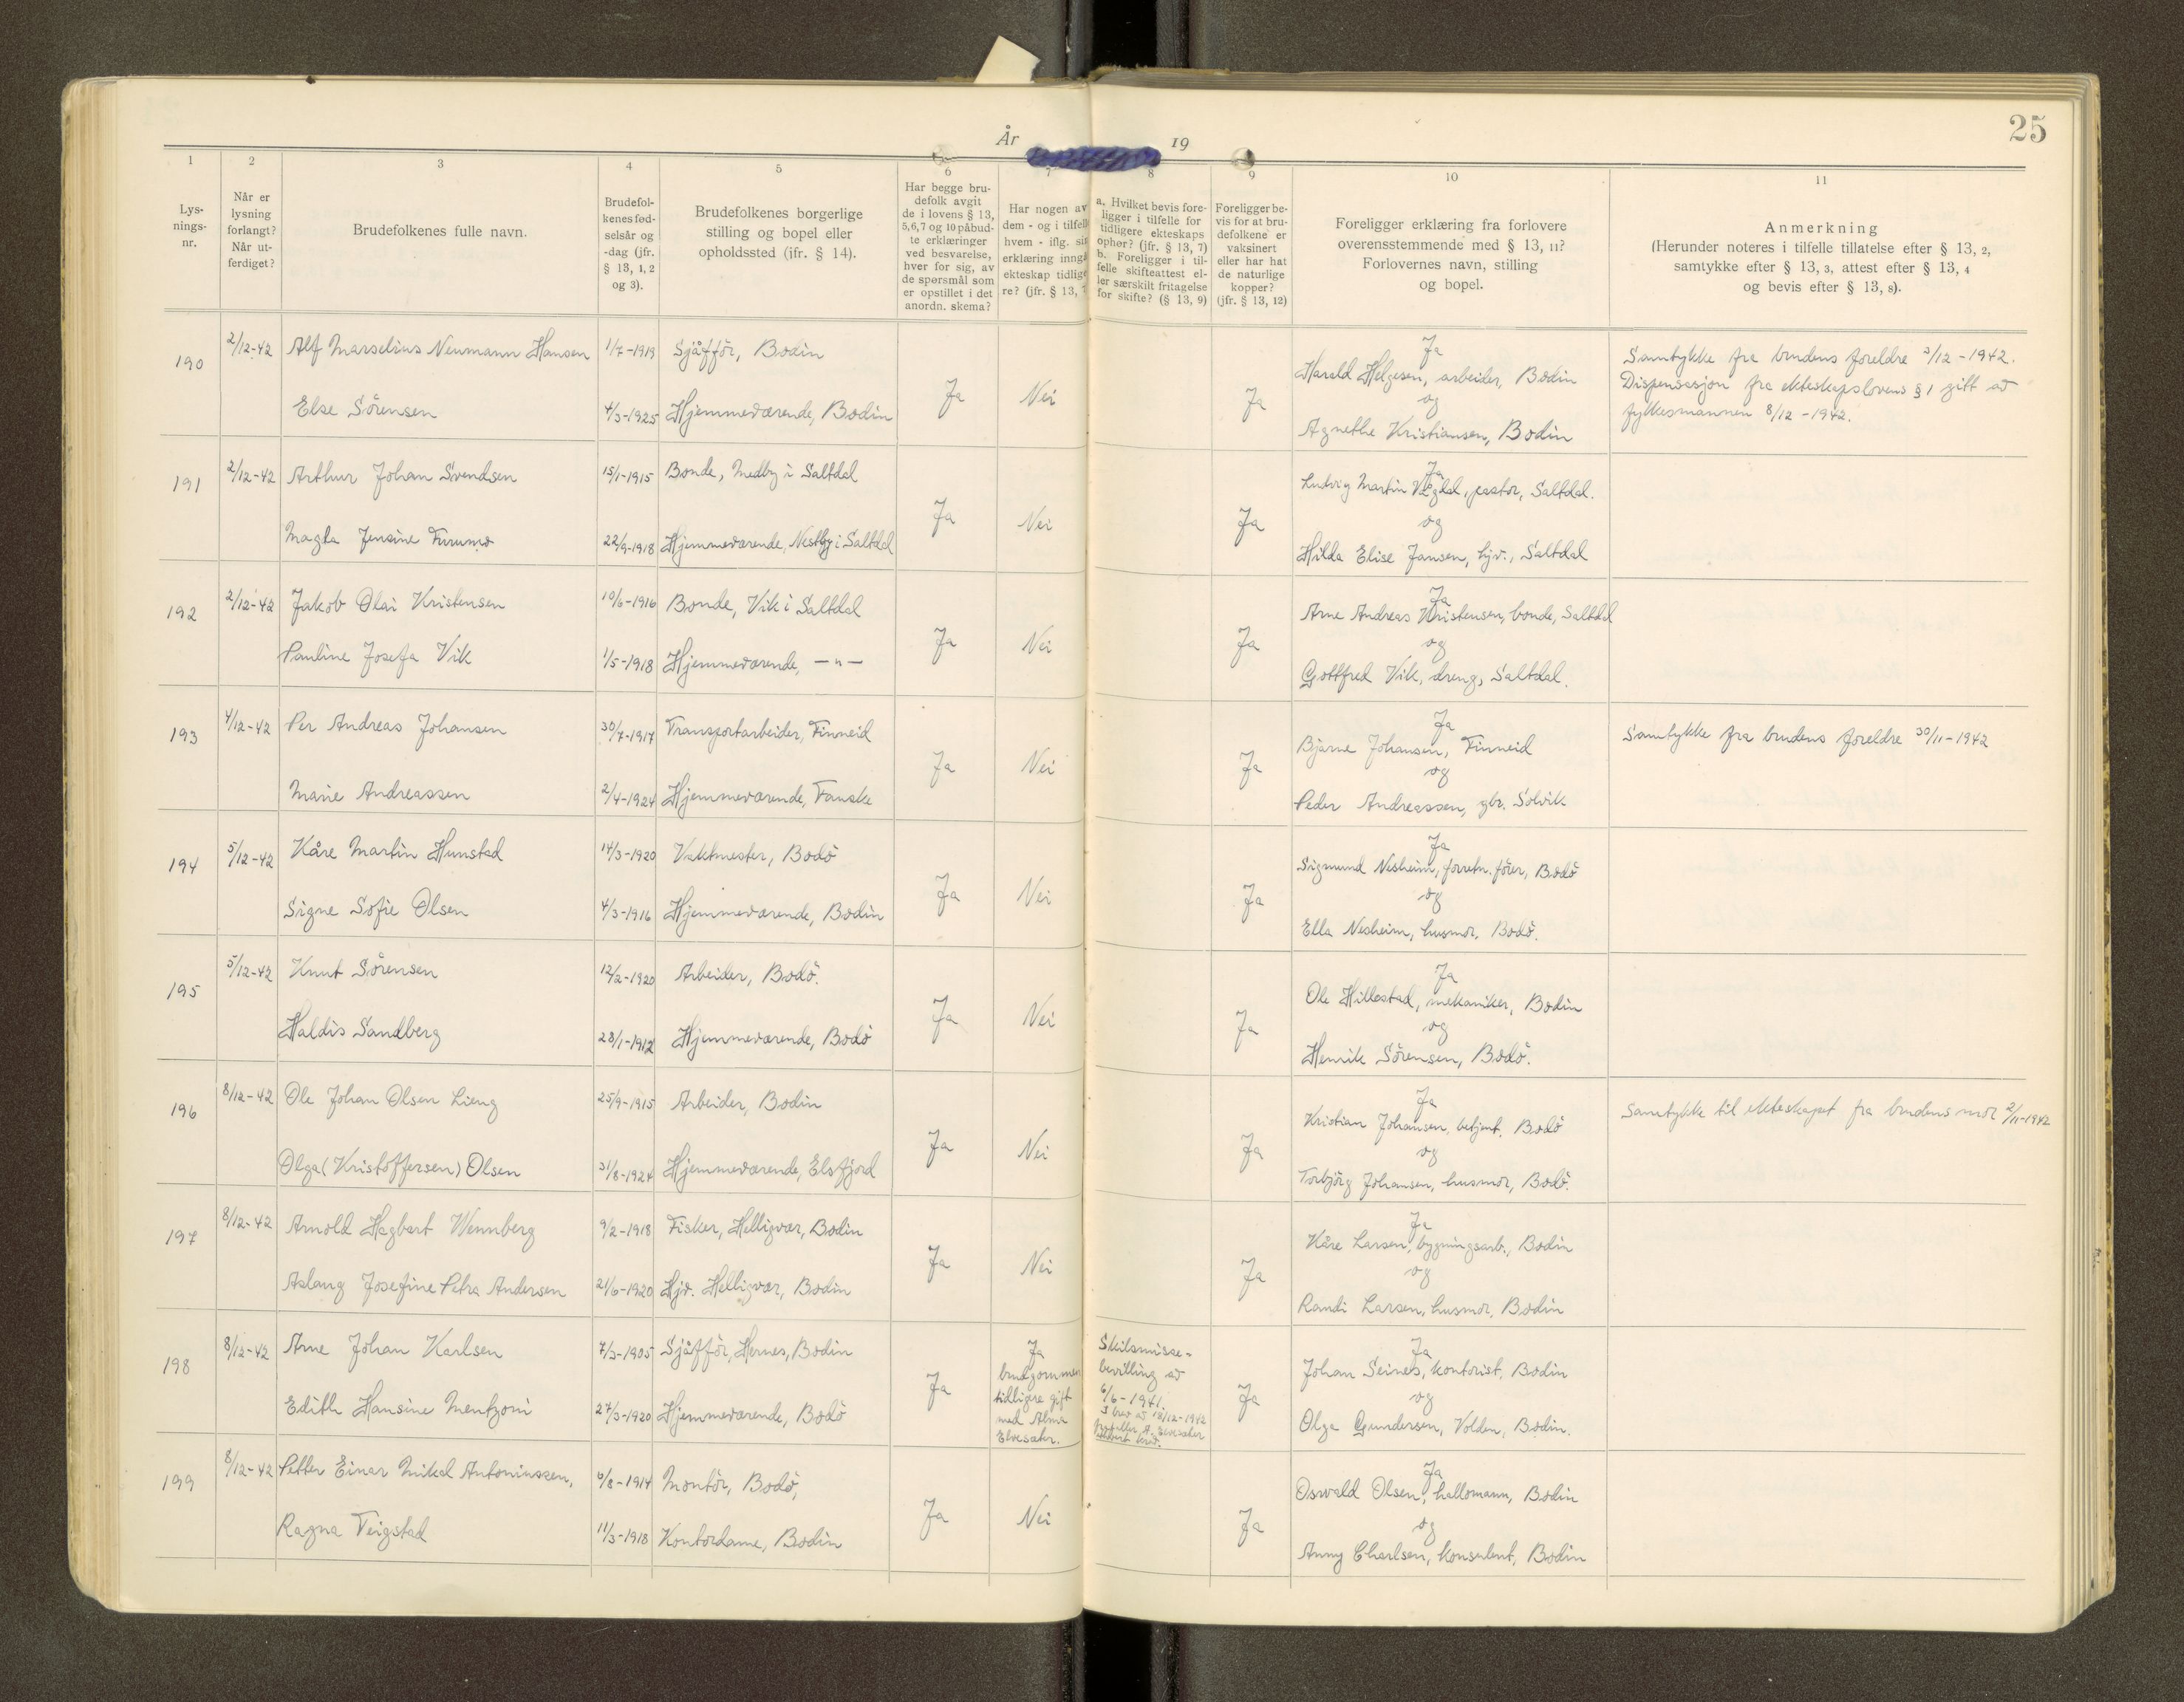 25
År 19
1 2 3 4 5 6 7 8 9 10 11
Lys-
nings-
nr.
Når er
lysning
forlangt?
Når ut-
ferdiget?
Brudefolkenes fulle navn.
Brudefol-
kenes fød-
selsår og
-dag (jfr.
§ 13, 1, 2
og 3).
Brudefolkenes borgerlige
stilling og bopel eller
opholdssted (jfr. § 14).
Har begge bru-
defolk avgit
de i lovens § 13,
5,6,7 og 10 påbud-
te erklæringer
ved besvarelse,
hver for sig, av
de spørsmål som
er opstillet i det
anordn. skema?
Har nogen av
dem - og i tilfelle
hvem - iflg. sin
erklæring inngå
ekteskap tidlige
re? (jfr. § 13, 7
a. Hvilket bevis fore-
ligger i tilfelle for
tidligere ekteskaps
ophør? (jfr. § 13, 7)
b. Foreligger i til-
felle skifteattest el-
ler særskilt fritagelse
for skifte? (§ 13, 9)
Foreligger be-
vis for at bru-
defolkene er
vaksinert
eller har hat
de naturlige
kopper?
(jfr. § 13, 12)
Foreligger erklæring fra forlovere
overensstemmende med § 13, 11?
Forlovernes navn, stilling
og bopel.
Anmerkning
(Herunder noteres i tilfelle tillatelse efter § 13, 2,
samtykke efter § 13, 3, attest efter § 13, 4
og bevis efter § 13, 8).
190 2/12-42 Alf Marselius Neumann Hansen 1/7-1919 Sjåfför, Bodin
Else Sörensen 4/3-1925 Hjemmeværende, Bodin
Ja Nei Ja
Ja
Harald Helgesen, arbeider, Bodin
og
Agnethe Kristiansen, Bodin
Samtykke fra brudens foreldre 3/12-1942.
Dispensasjon fra ekteskapslovens § 1 gitt av
fylkesmannen 8/12-1942.
191 2/12-42 Arthur Johan Svendsen 15/1-1915 Bonde, Medby i Saltdal
Magla Jensine Furumo 22/9-1918 Hjemmeværende, Nestby i Saltdal
Ja Nei Ja
Ja
Ludvig Martin Vegdal, pastor, Saltdal.
og
Hilda Elise Jansen, hjv., Saltdal
192 2/12-42 Jakob Olai Kristensen 10/6-1916 Bonde, Vik i Saltdal
Pauline Josefa Vik 1/5-1918 Hjemmeværende, —"—
Ja Nei Ja
Ja
Arne Andreas Kristensen, bonde, Saltdal
og
Gottfred Vik, dreng, Saltdal.
193 4/12-42 Per Andreas Johansen 30/7-1917 Transportarbeider, Finneid
Marie Andreassen 2/4-1924 Hjemmeværende, Fauske
Ja Nei Ja
Ja
Bjarne Johansen, Finneid
og
Peder Andreassen, gbr. Solvik
Samtykke fra brudens foreldre 30/11-1942
194 5/12-42 Kåre Martin Hunstad 14/3-1920 Vaktmester, Bodö
Signe Sofie Olsen 4/3-1916 Hjemmeværende, Bodin
Ja Nei Ja
Ja
Sigmund Nesheim, forretn.förer, Bodö
og
Ella Nesheim, husmor, Bodö.
195 5/12-42 Knut Sörensen 12/2-1920 Arbeider, Bodö.
Haldis Sandberg 28/1-1912 Hjemmeværende, Bodö
Ja Nei Ja
Ja
Ole Hillestad, mekaniker, Bodin
og
Henrik Sörensen, Bodö.
196 8/12-42 Ole Johan Olsen Lieng 25/9-1915 Arbeider, Bodin
Olga (Kristoffersen) Olsen 31/8-1924 Hjemmeværende, Elsfjord
Ja Nei Ja
Ja
Kristian Johansen, betjent, Bodö
og
Torbjörg Johansen, husmor, Bodö.
Samtykke til ekteskapet fra brudens mor 2/11-1942
197 8/12-42 Arnold Hagbart Wennberg 9/2-1918 Fisker, Helligvær, Bodin
Aslaug Josefine Petra Andersen 21/6-1920 Hjv. Helligvær, Bodin
Ja Nei Ja
Ja
Kåre Larsen, bygningsarb., Bodin
og
Randi Larsen, husmor, Bodin
198 8/12-42 Arne Johan Karlsen 7/3-1905 Sjåffør, Hernes, Bodin
Edith Hansine Mentzoni 27/3-1920 Hjemmeværende, Bodö
Ja
Ja
brudgommen
tidligere gift
med Alma
Elvesæter.
Skilsmisse-
bevilling av
6/6-1941.
I brev av 12-1942
Elvesæter
Ja
Ja
Johan Seines, kontorist, Bodin
og
Olga Gundersen, Volden, Bodin.
199 8/12-42 Petter Einar Mikal Antoniussen, 6/8-1914 Montör, Bodö,
Ragna Teigstad 11/3-1918 Kontordame, Bodin
Ja Nei Ja
Ja
Oswald Olsen, hallomann, Bodin
og
Anny Charlsen, konsulent, Bodin